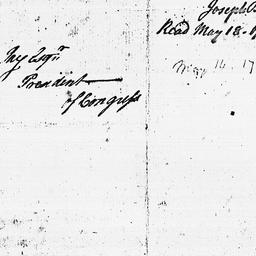 Jay Esqr.
President
of Congress
Joseph
Read May 18-
May 16. 17